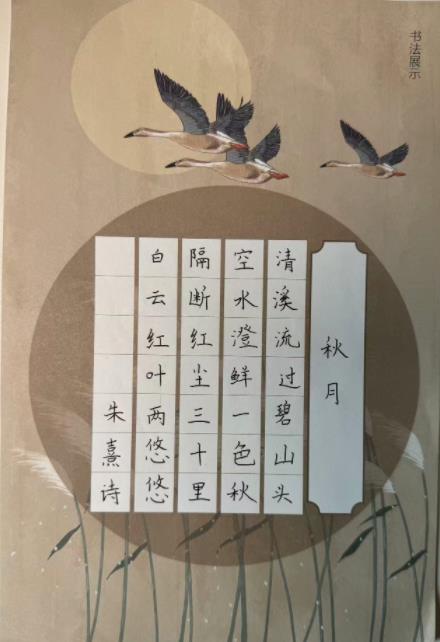 书法展示
秋月
清溪流过碧山头
空水澄鲜一色秋
隔断红尘三十里
白云红叶两悠悠
朱熹诗